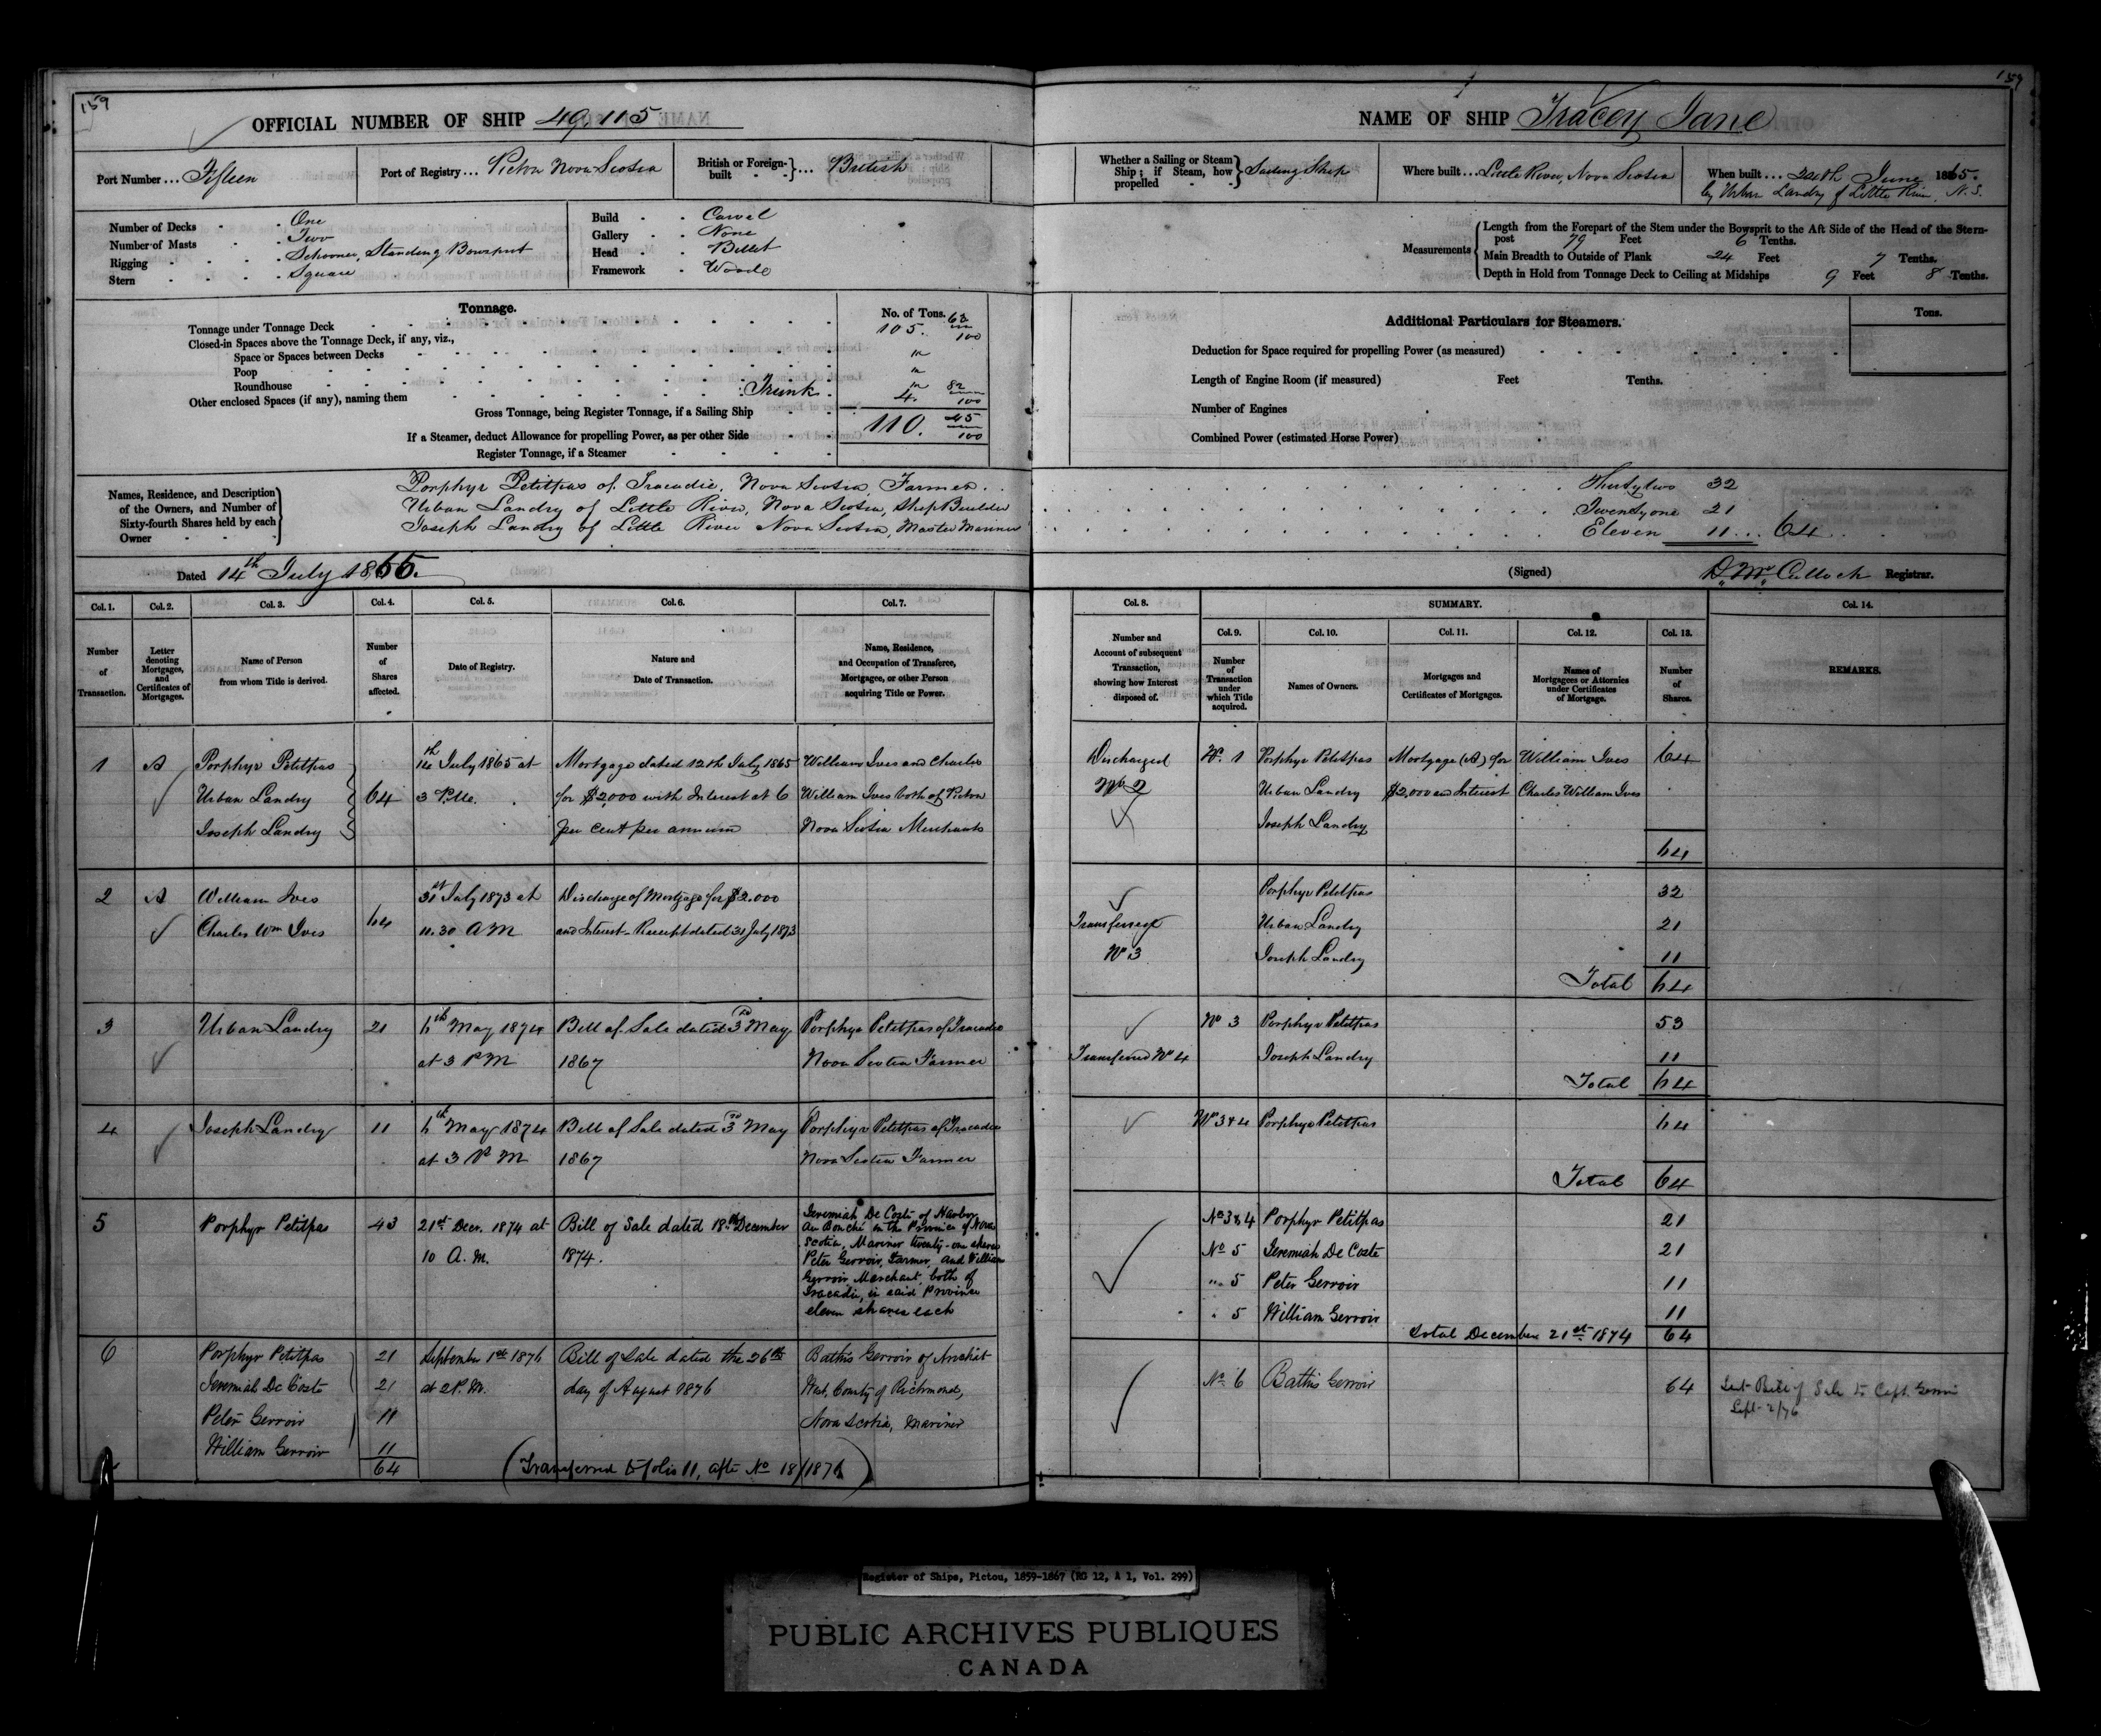 159
OFFICIAL NUMBER OF SHIP 49,115
Port Number ... Fifteen
Port of Registry ... Pictou Nova Scotia
British or Foreign-built } ... British
Number of Decks One
Number of Masts Two
Rigging Schooner, Standing Bowsprit
Stern Square
Build Carvel
Gallery None
Head Billet
Framework Wood
Tonnage.
No. of Tons.
Tonnage under Tonnage Deck 105. 63/100
Closed-in Spaces above the Tonnage Deck, if any, viz.,
Space or Spaces between Decks
Poop
Roundhouse
Other enclosed Spaces (if any), naming them Trunk 4. 82/100
Gross Tonnage, being Register Tonnage, if a Sailing Ship 110. 45/100
If a Steamer, deduct Allowance for propelling Power, as per other Side
Register Tonnage, if a Steamer
Names, Residence, and Description of the Owners, and Number of Sixty-fourth Shares held by each Owner
Porphyr Petitpas of Tracadie, Nova Scotia, Farmer
Urban Landry of Little River, Nova Scotia, Ship Builder
Joseph Landry of Little River Nova Scotia, Master Mariner
Dated 14th July 1865.
Col. 1. Col. 2. Col. 3. Col. 4. Col. 5. Col. 6. Col. 7.
Number of Transaction.
Letter denoting Mortgages, and Certificates of Mortgages.
Name of Person from whom Title is derived.
Number of Shares affected.
Date of Registry.
Nature and Date of Transaction.
Name, Residence, and Occupation of Transferee, Mortgagee, or other Person acquiring Title or Power.
1 A Porphyr Petitpas 14th July 1865 at Mortgage dated 12th July 1865 William Ives and Charles
Urban Landry 64 3 P.M. for $2,000 with Interest at 6 William Ives both of Pictou
Joseph Landry per cent per annum Nova Scotia Merchants
2 A William Ives 64 31st July 1873 at Discharge of Mortgage for $2.000
Charles Wm Ives 10.30 AM and Interest - Receipt dated 31 July 1873
3 Urban Landry 21 6th May 1874 Bill of Sale dated 3rd May Porphyr Petitpas of Tracadie
at 3 PM 1867 Nova Scotia Farmer
4 Joseph Landry 11 6th May 1874 Bill of Sale dated 3rd May Porphyr Petitpas of Tracadie
at 3 PM 1867 Nova Scotia Farmer
5 Porphyr Petitpas 43 21st Decr. 1874 at Bill of Sale dated 18th December
10 A.M. 1874.
Jeremiah De Coste of Harbor
Au Bouche in the Province of Nova
Scotia, Mariner twenty-one shares
Peter Gerroir, Farmer, and William
Gerroir Merchant, both of
Tracadie, in said Province
eleven shares each
6 Porphyr Petitpas 21 September 1st 1876 Bill of Sale dated the 26th Bathis Gerroir of Arichat
Jeremiah De Coste 21 at 2 P.M. day of August 1876 West, County of Richmond,
Peter Gerroir 11 Nova Scotia, Mariner
William Gerroir 11
64 (Transferred to folio 11, after No 18/1876)
159
NAME OF SHIP Tracey Jane
Whether a Sailing or Steam Ship; if Steam, how propelled } Sailing Ship
Where built ... Little River, Nova Scotia
When built ... 24th June 1865.
by Urban Landry of Little River, N.S.
Measurements
Length from the Forepart of the Stem under the Bowsprit to the Aft Side of the Head of the Stern-
post 79 Feet 6 Tenths.
Main Breadth to Outside of Plank 24 Feet 7 Tenths.
Depth in Hold from Tonnage Deck to Ceiling at Midships 9 Feet 8 Tenths.
Additional Particulars for Steamers.
Tons.
Deduction for Space required for propelling Power (as measured)
Length of Engine Room (if measured) Feet Tenths.
Number of Engines
Combined Power (estimated Horse Power)
Thirtytwo 32
Twentyone 21
Eleven 11 ... 64
(Signed) D. McCulloch Registrar.
Col. 8. SUMMARY. Col. 14.
Col. 9. Col. 10. Col. 11. Col. 12. Col. 13.
Number and Account of subsequent Transaction, showing how Interest disposed of.
Number of Transaction under which Title acquired.
Names of Owners.
Mortgages and Certificates of Mortgages.
Names of Mortgagees or Attornies under Certificates of Mortgage.
Number of Shares.
REMARKS.
Discharged No. 1 Porphyr Petitpas Mortgage (A) for William Ives 64
No 2 Urban Landry $2,000 and Interest Charles William Ives
Joseph Landry
64
Porphyr Petitpas 32
Transferred Urban Landry 21
No 3 Joseph Landry 11
Total 64
No 3 Porphyr Petitpas 53
Transferred No 4 Joseph Landry 11
Total 64
No 3 & 4 Porphyr Petitpas 64
Total 64
No 3 & 4 Porphyr Petitpas 21
No 5 Jeremiah De Coste 21
" 5 Peter Gerroir 11
" 5 William Gerroir 11
Total December 21st 1874 64
No 6 Bathis Gerroir 64 Sent Bill of Sale to Capt. Gerroir
Sept. 2/76
Register of Ships, Pictou, 1859-1867 (RG 12, A 1, Vol. 299)
PUBLIC ARCHIVES PUBLIQUES
CANADA